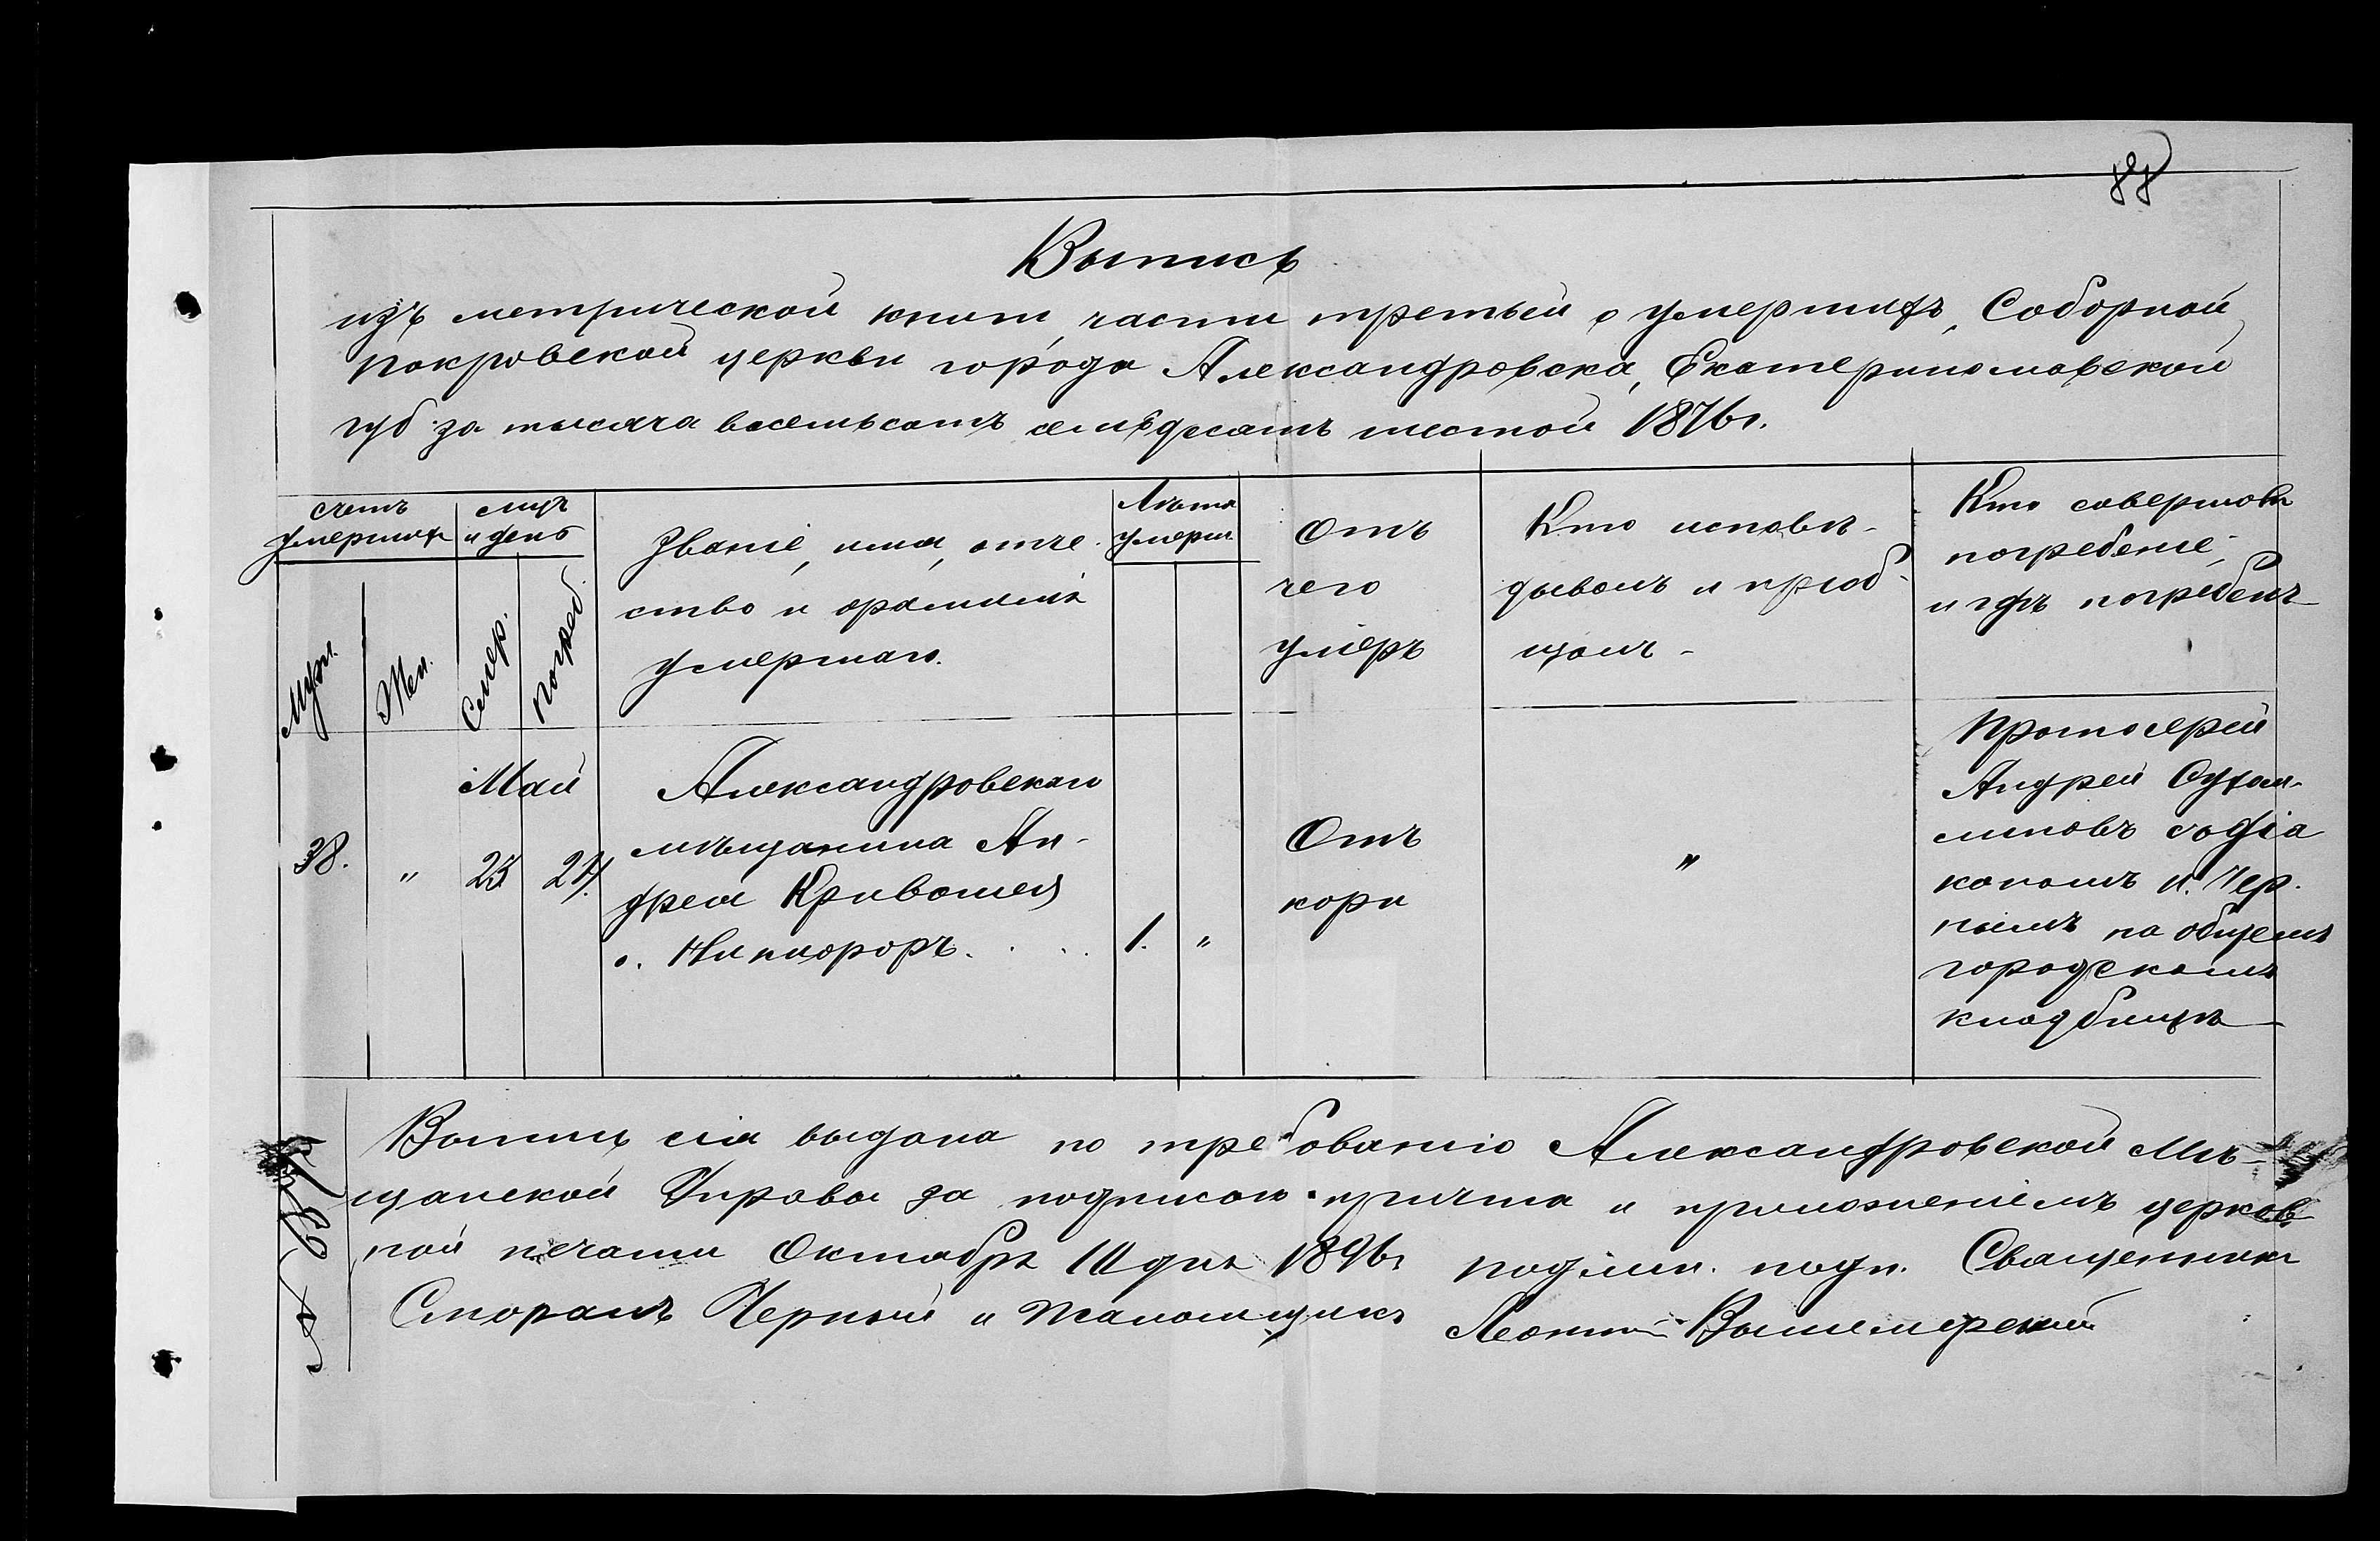 88
Выпись
изъ метрической книги, части третьей о умершихъ, Соборной
Покровской церкви города Александровска, Екатеринославской
губ за тысяча восемьсотъ семьдесятъ шестой 1876г.
счетъ умершихъ
Муж.
Жен.
мцъ и день
Смер.
Погреб.
Званіе, имя, отче-
ство и фамилія
умершаго.
Лѣта умерш.
Отъ
чего
умеръ
Кто исповѣ-
дывалъ и пріоб-
щалъ -
Кто совершалъ
погребеніе,
и гдѣ погребенъ
Май
38.
"
23
24.
Александровскаго
мѣщанина Ан-
дрея Кривошея
с. Никифоръ.
1.
"
Отъ
кори
"
Протоіерей
Андрей
содіа
кономъ И. Чер-
нымъ на общемъ
городскомъ
кладбищѣ
Выпись сія выдана по требованію Александровской Мѣ-
щанской Управы за подписью причта и приложеніемъ церков
ной печати Октября 10 дня 1896г подлин. подп. Священникъ
Черный и Псаломщикъ Леонтій